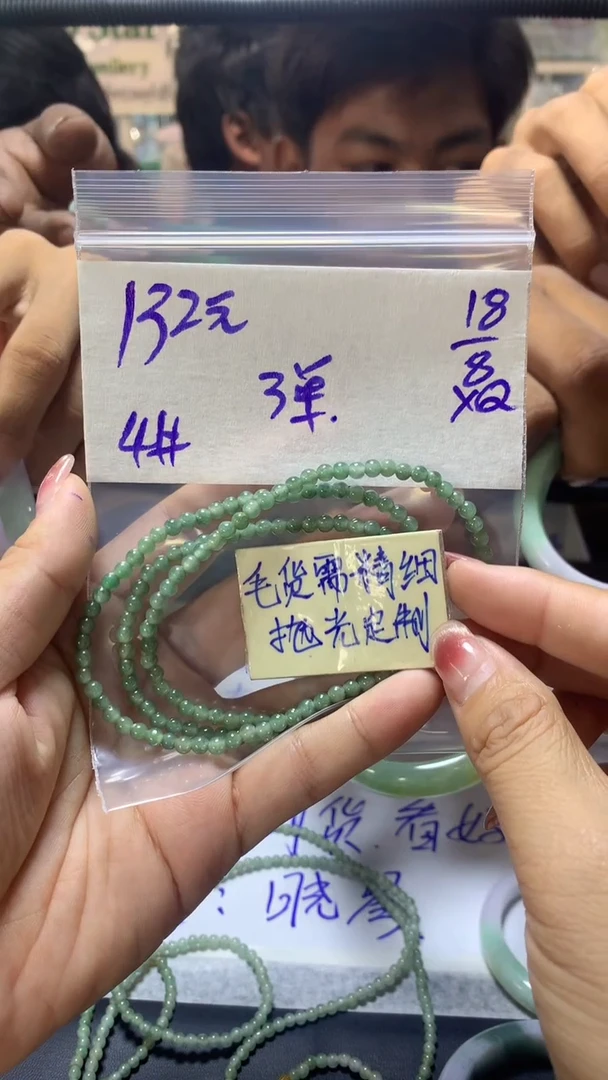 132元
18
8
XQ
3单.
4#
毛货需精细
抛光定制
货.看好